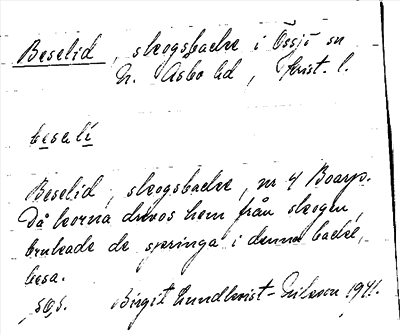 Beselid, skogsbacke i Össjö sn
N. Åsbo hd, Krist. l.
besalí
Beselid, skogsbacke, nr 4 Boarp.
Då korna drevos hem från skogen,
brukade de springa i denna backe,
besa.
Birgit Lundkvist - 1941.